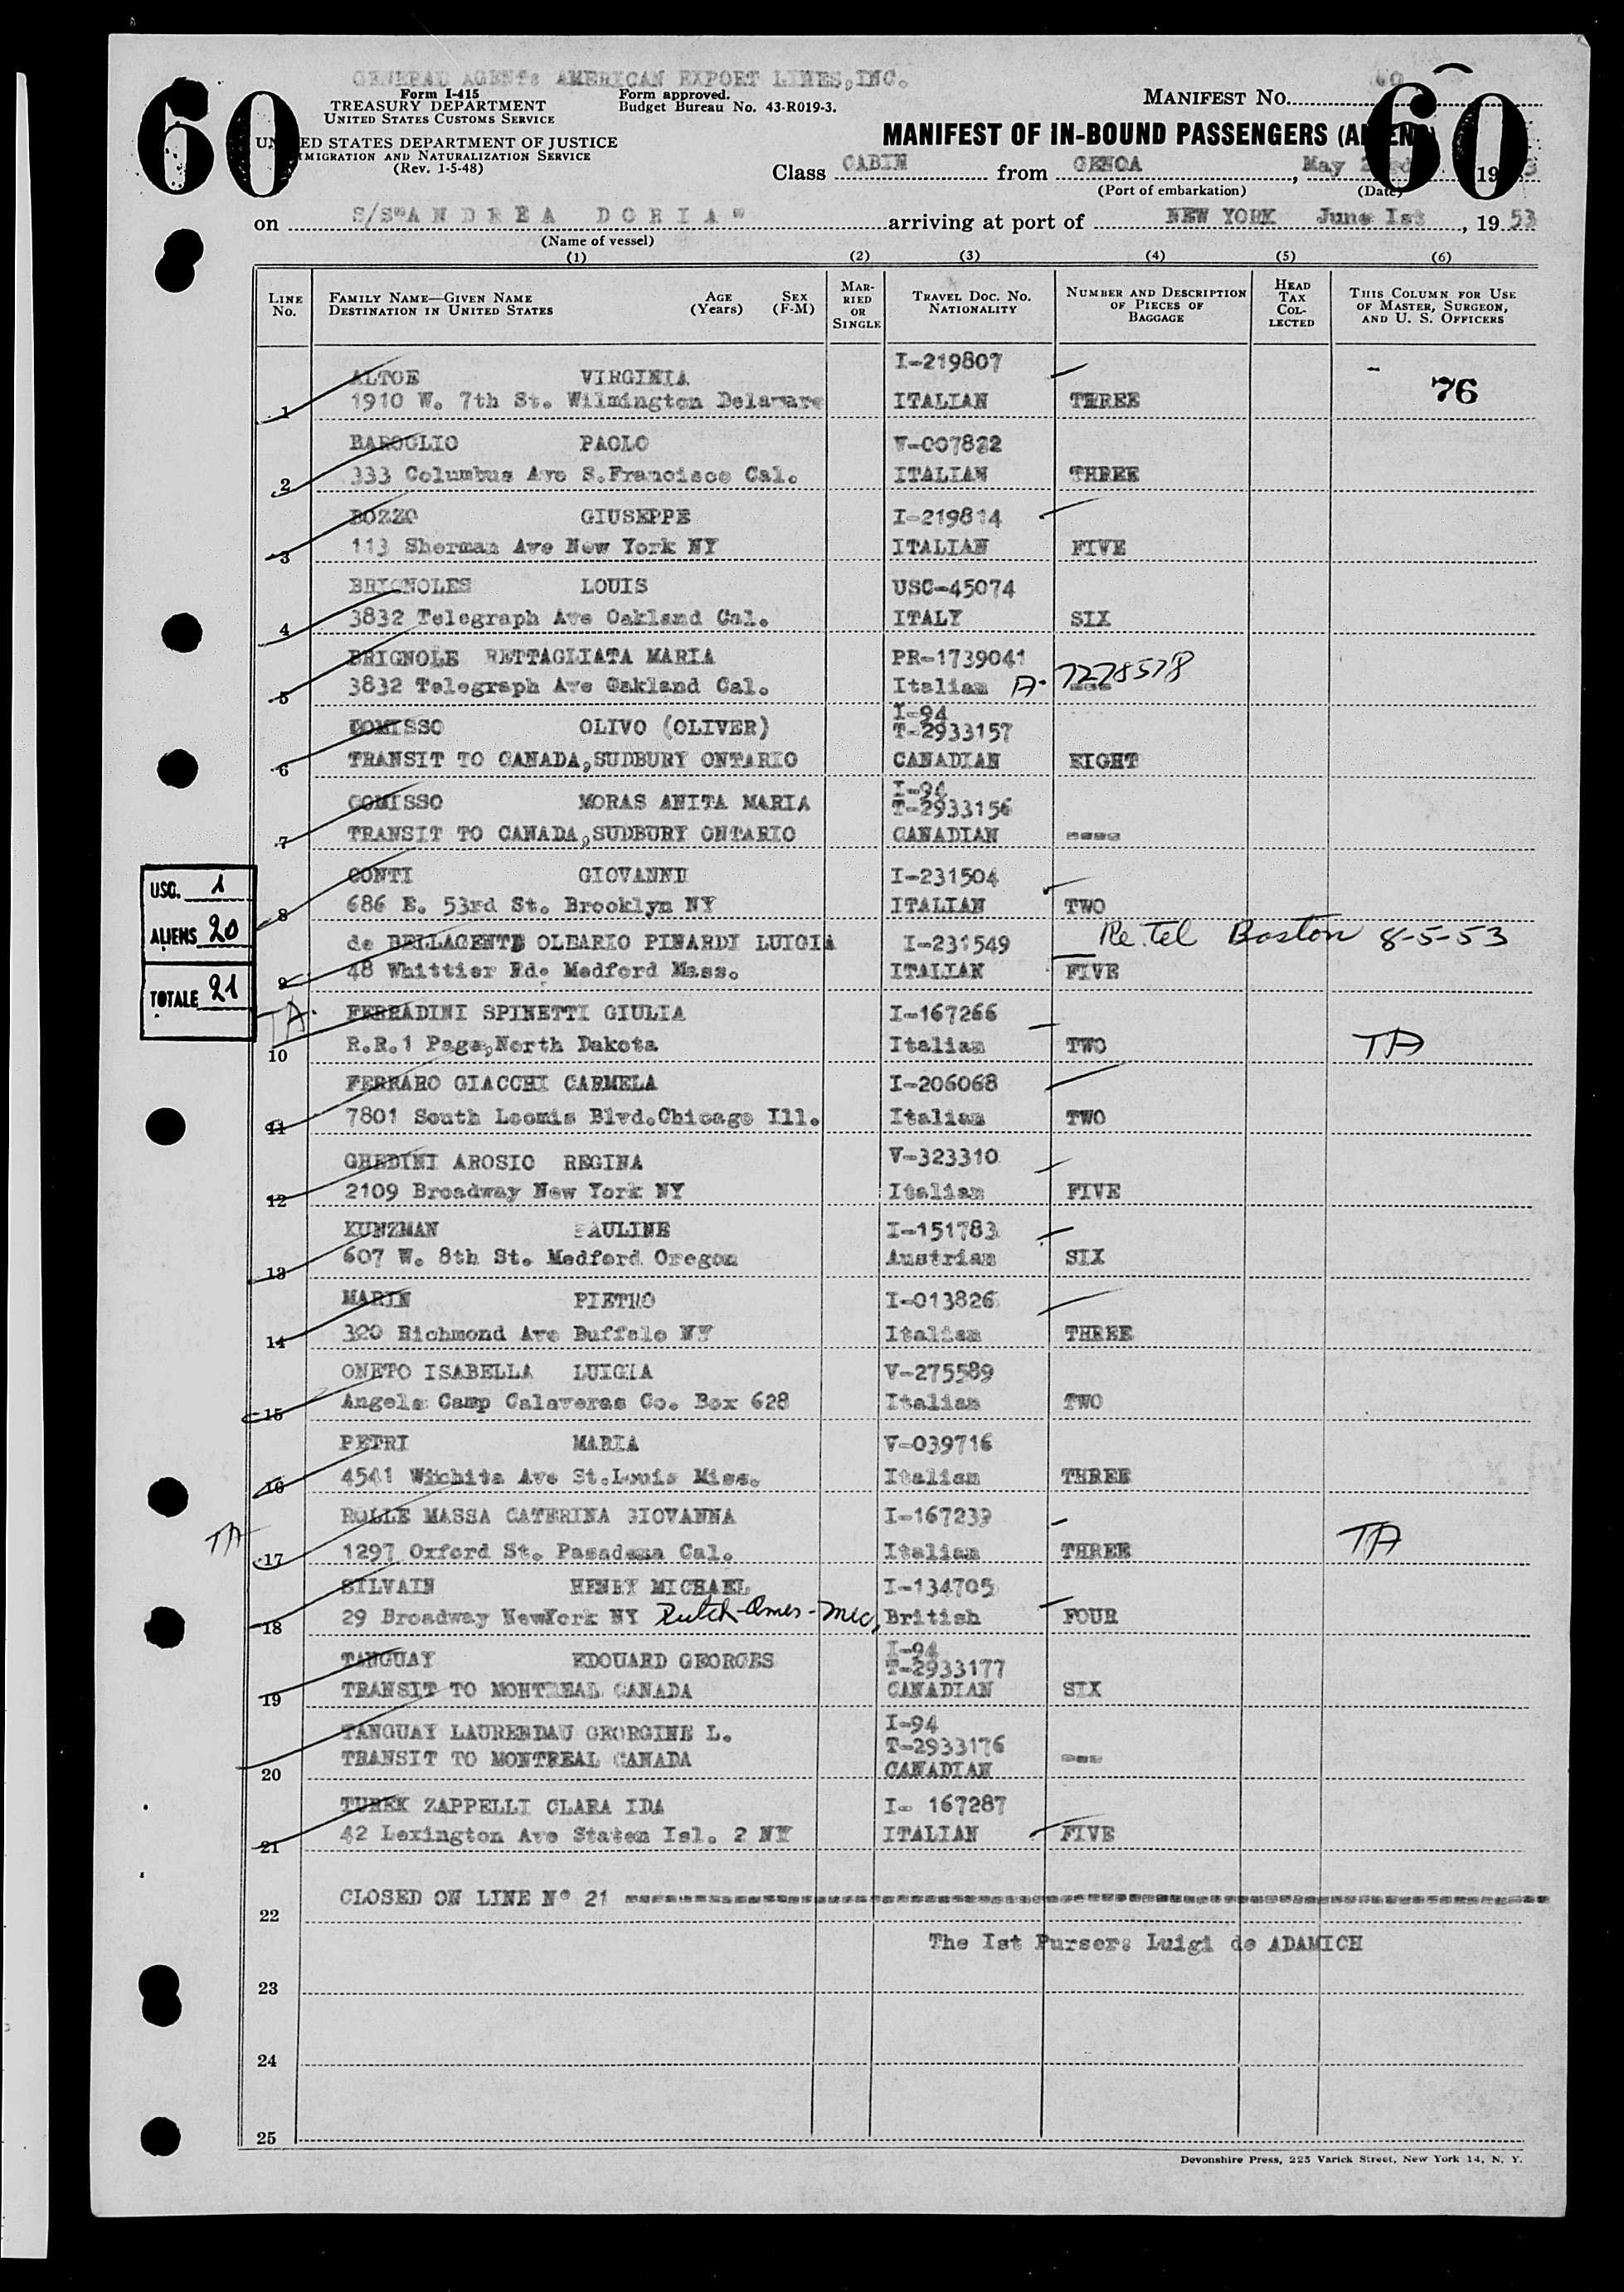 GENERAL AGENT: AMERICAN EXPORT LINES, INC.
60
Form I-415
TREASURY DEPARTMENT
UNITED STATES CUSTOMS SERVICE
UNITED STATES DEPARTMENT OF JUSTICE
IMMIGRATION AND NATURALIZATION SERVICE
(Rev. 1-5-48)
Form approved.
Budget Bureau No. 43-R019-3.
MANIFEST NO. 60
60
MANIFEST OF IN-BOUND PASSENGERS (ALIENS)
Class CABIN from GENOA, May 23rd 1953
(Port of embarkation) (Date)
on S/S "ANDREA DORIA" arriving at port of NEW YORK June 1st, 1953
(Name of vessel)
(1) (2) (3) (4) (5) (6)
LINE NO. FAMILY NAME—GIVEN NAME DESTINATION IN UNITED STATES AGE (Years) SEX (F-M) MARRIED OR SINGLE TRAVEL DOC. NO. NATIONALITY NUMBER AND DESCRIPTION OF PIECES OF BAGGAGE HEAD TAX COLLECTED THIS COLUMN FOR USE OF MASTER, SURGEON, AND U. S. OFFICERS
ALTOE VIRGINIA I-219807 76
1 1910 W. 7th St. Wilmington Delaware ITALIAN THREE
BAROGLIO PAOLO V-007822
2 333 Columbus Ave S.Francisco Cal. ITALIAN THREE
BOZZO GIUSEPPE I-219814
3 113 Sherman Ave New York NY ITALIAN FIVE
BRIGNOLES LOUIS USC-45074
4 3832 Telegraph Ave Oakland Cal. ITALY SIX
BRIGNOLE RETTAGLIATA MARIA PR-1739041
5 3832 Telegraph Ave Oakland Cal. Italian A- 7278578 ---
COMISSO OLIVO (OLIVER) I-94 T-2933157
6 TRANSIT TO CANADA,SUDBURY ONTARIO CANADIAN EIGHT
COMISSO MORAS ANITA MARIA I-94 T-2933156
7 TRANSIT TO CANADA,SUDBURY ONTARIO CANADIAN ----
CONTI GIOVANNI I-231504
8 686 E. 53rd St. Brooklyn NY ITALIAN TWO
USC. 1
ALIENS 20
TOTALE 21
de BELLAGENTE OLEARIO PINARDI LUIGIA I-231549 Re. Tel Boston 8-5-53
9 48 Whittier Rd. Medford Mass. ITALIAN FIVE
TA. FERRADINI SPINETTI GIULIA I-167266
10 R.R.1 Page,North Dakota Italian TWO TA
FERRARO GIACCHI CARMELA I-206068
11 7801 South Loomis Blvd.Chicago Ill. Italian TWO
GHEDINI AROSIO REGINA V-323310
12 2109 Broadway New York NY Italian FIVE
KUNZMAN PAULINE I-151783
13 607 W. 8th St. Medford Oregon Austrian SIX
MARIN PIETRO I-013826
14 320 Richmond Ave Buffalo NY Italian THREE
ONETO ISABELLA LUIGIA V-275589
15 Angels Camp Calaveras Co. Box 628 Italian TWO
PETRI MARIA V-039716
16 4541 Wichita Ave St.Louis Miss. Italian THREE
ROLLE MASSA CATERINA GIOVANNA I-167239
TA 17 1297 Oxford St. Pasadena Cal. Italian THREE TA
SILVAIN HENRY MICHAEL I-134705
18 29 Broadway NewYork NY British FOUR
TANGUAY EDOUARD GEORGES I-94 T-2933177
19 TRANSIT TO MONTREAL CANADA CANADIAN SIX
TANGUAY LAURENDAU GEORGINE L. I-94 T-2933176
20 TRANSIT TO MONTREAL CANADA CANADIAN ---
TUREK ZAPPELLI CLARA IDA I- 167287
21 42 Lexington Ave Staten Isl. 2 NY ITALIAN FIVE
22 CLOSED ON LINE N° 21
The Ist Purser: Luigi de ADAMICH
23
24
25
Devonshire Press, 225 Varick Street, New York 14, N. Y.